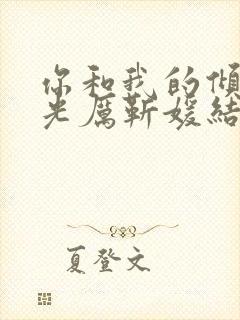 你和我的傾
光厲靳媛結
夏登文